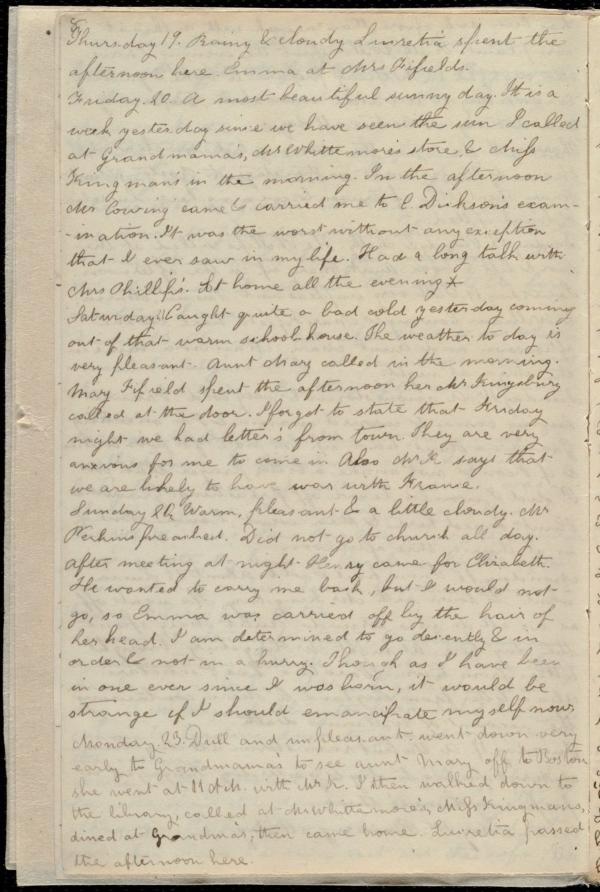 Thursday 19. Rainy & cloudy Lucretia spent the
afternoon here. Emma at Mrs Fifields.
Friday 20. A most beautiful sunny day. It is a
week yesterday since we have seen the sun I called
at Grandmama's, Mr Whittemore's store, & Miss
Kingman's in the morning. In the afternoon
Mr Cowing came & carried me to C. Dickson's exam-
-ination. It was the worst without any exception
that I ever saw in my life. Had a long talk with
Mrs Phillips. At home all the evening
Saturday Caught quite a bad cold yesterday coming
out of that warm school house. The weather to day is
very pleasant. Aunt Mary called in the morning.
Mary Fifield spent the afternoon her Mr Kingsbury
called at the door. I forgot to state that Friday
night we had letter's from town. They are very
anxious for me to come in Also Mr K says that
we are likely to have war with France.
Sunday 22. Warm, pleasant & a little cloudy. Mr
Perkins preached. Did not go to church all day.
After meeting at night Henry came for Elizabeth.
He wanted to carry me back, but I would not
go, so Emma was carried off by the hair of
her head. I am determined to go decently & in
order & not in a hurry. Though as I have been
in one ever since I was born, it would be
strange if I should emancipate myself now
Monday 23. Dull and unpleasant went down very
early to Grandmama's to see aunt Mary off to Boston
she went at 11 A.M. with Mr K. I then walked down to
the library, called at Mr Whittemore's, Miss Kingmans,
dined at Grandma's, then came home. Lucretia passed
the afternoon here.